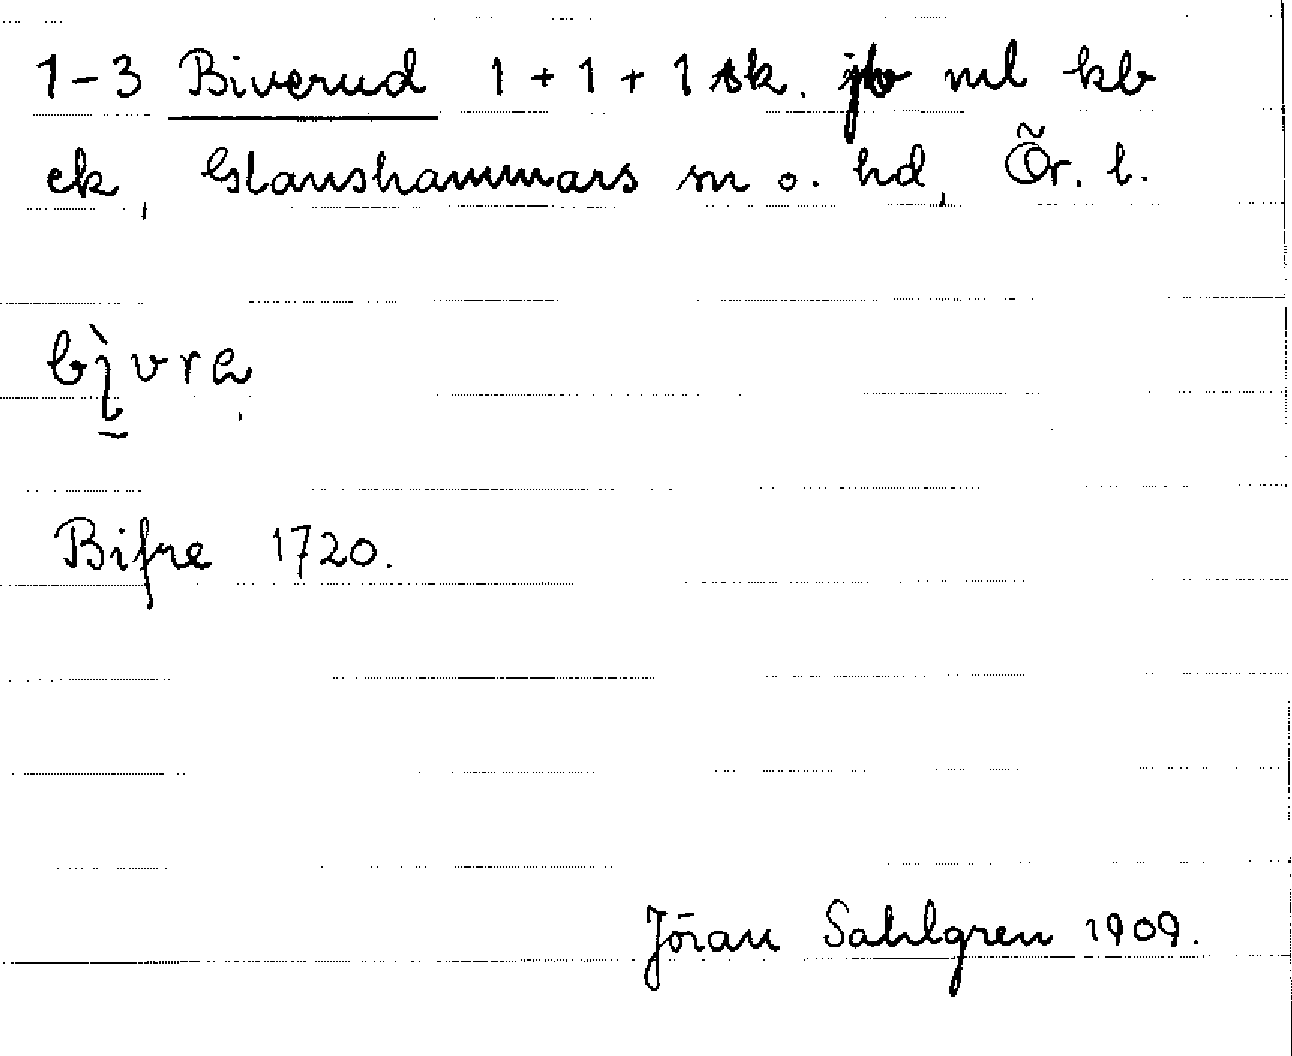 1-3 Biverud 1+1+1 sk. jb ml kb
ek, Glanshammars sn o. hd, Ör. l.
Bifre 1720.
Jöran Sahlgren 1909.